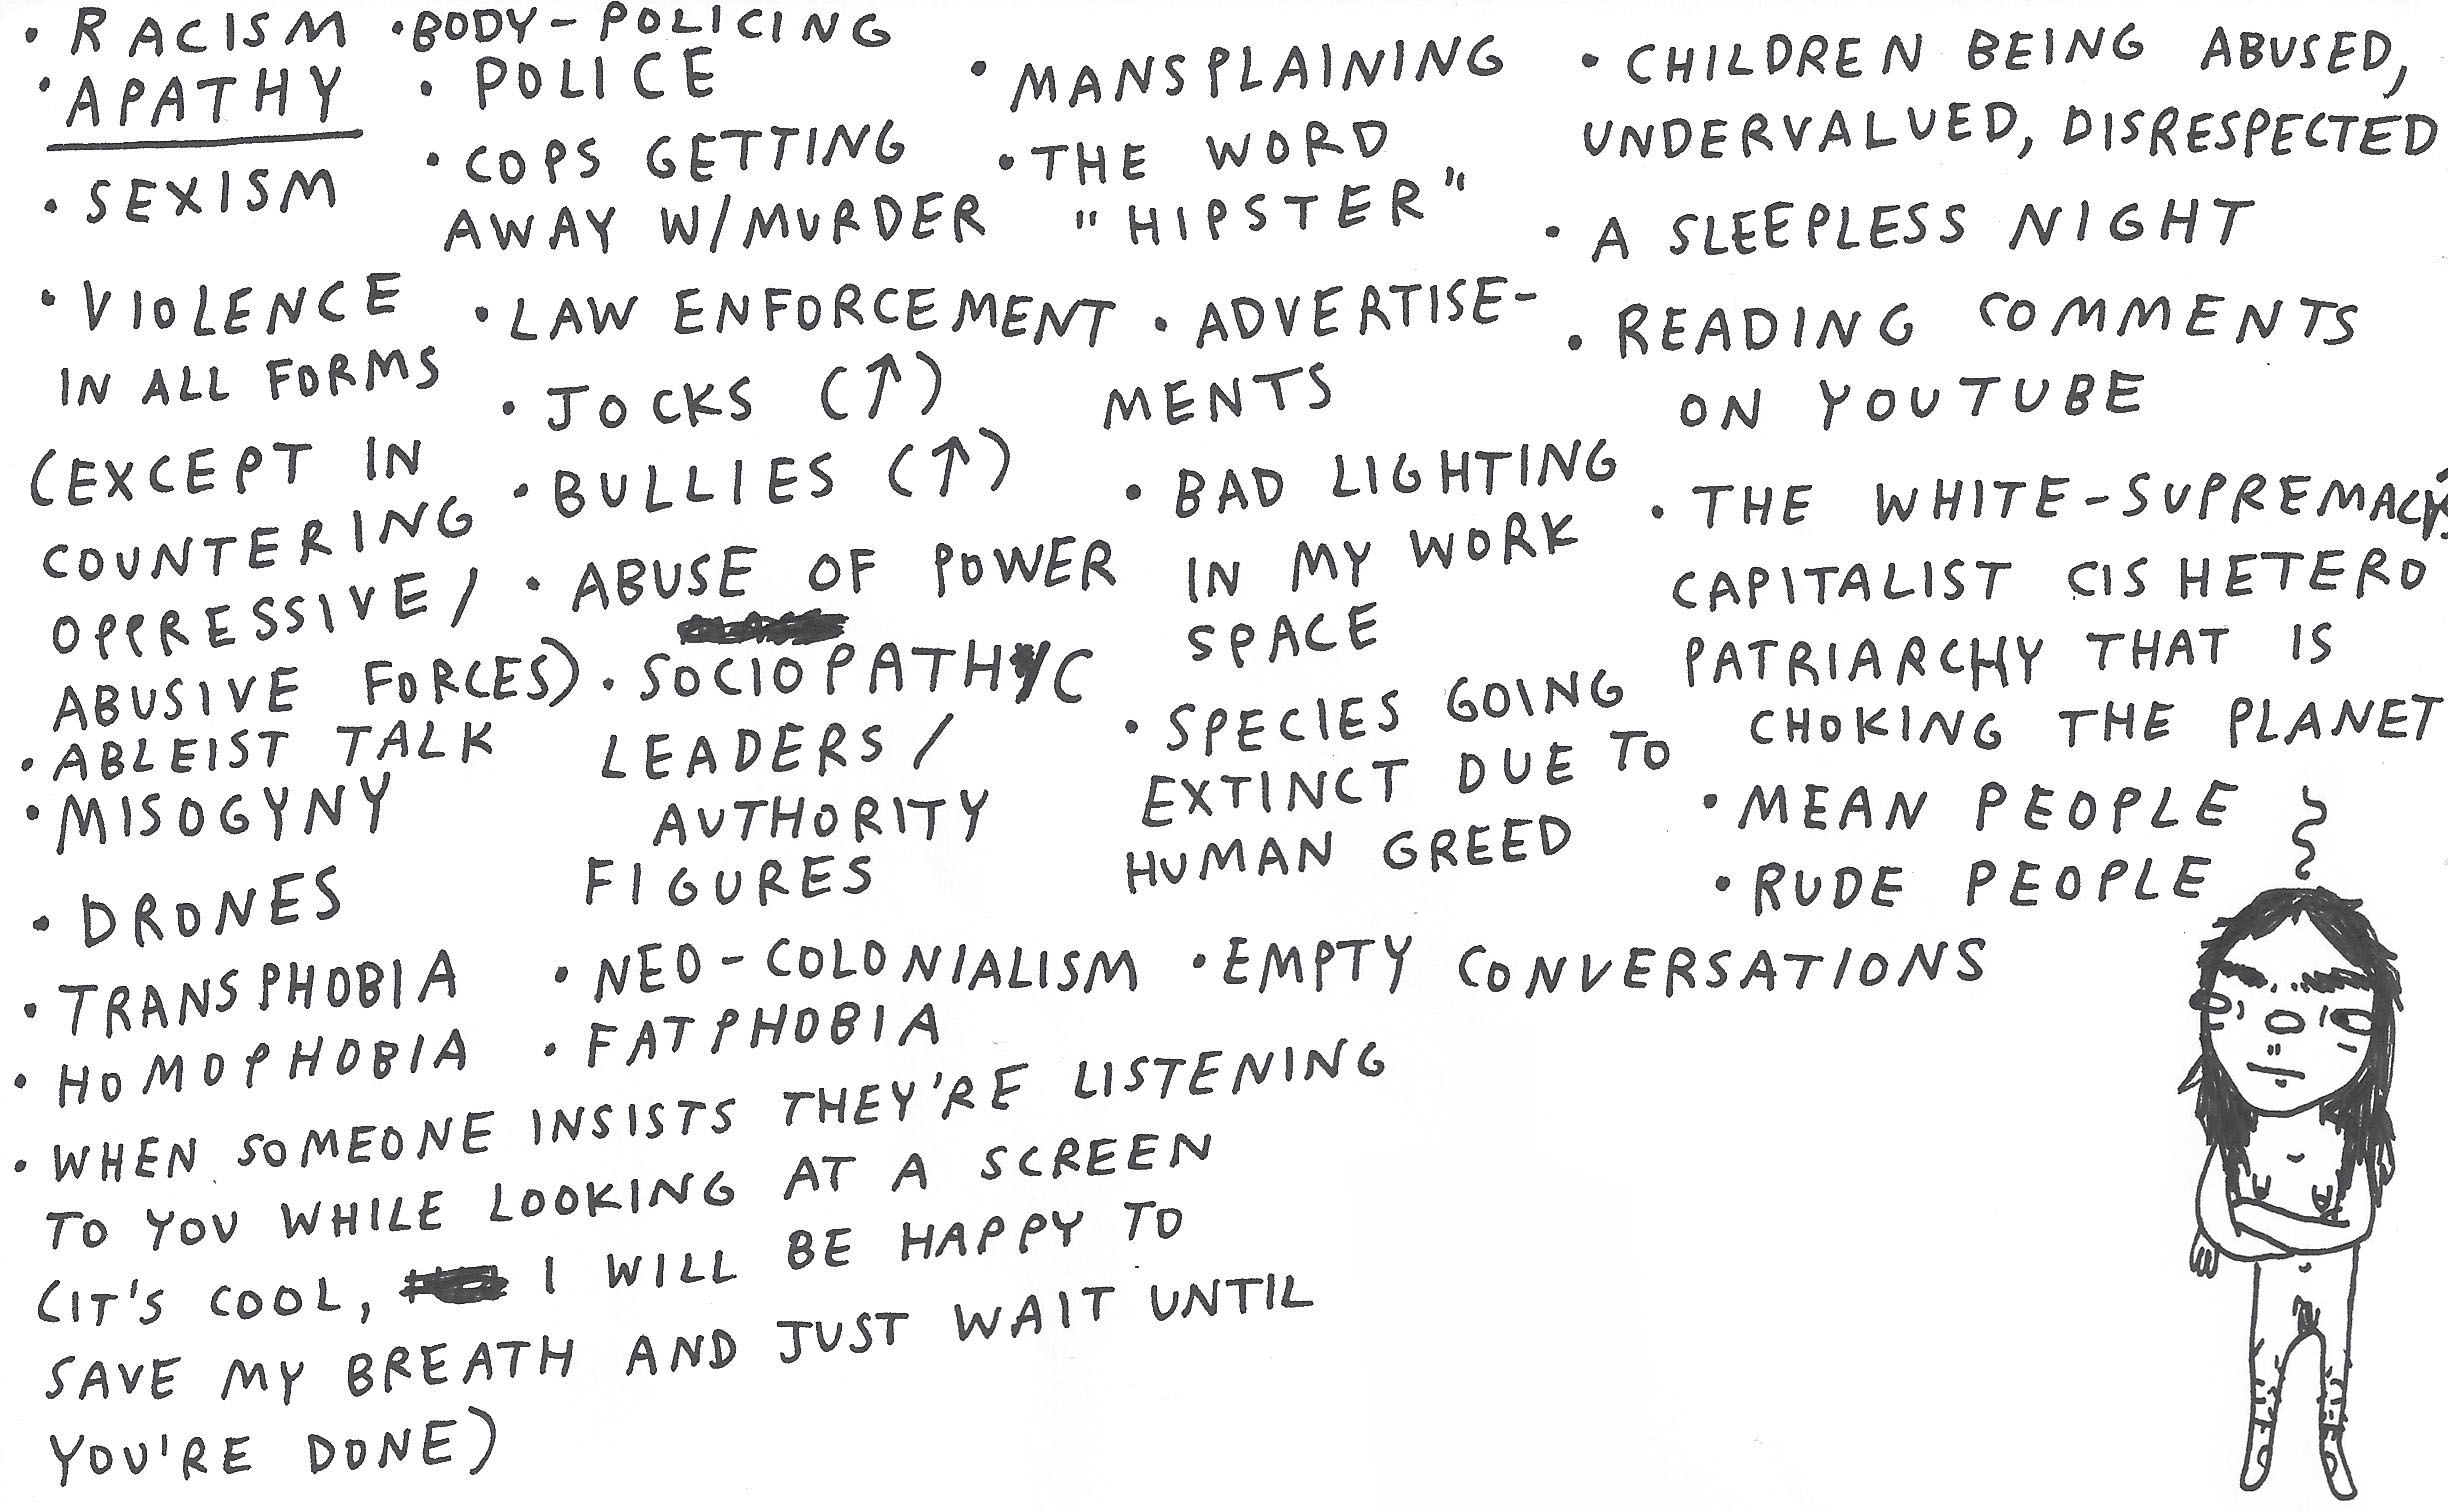 • RACISM
• APATHY
• SEXISM
• VIOLENCE
IN ALL FORMS
(EXCEPT IN
COUNTERING
OPPRESSIVE/
ABUSIVE FORCES)
• ABLEIST TALK
• MISOGYNY
• DRONES
• TRANSPHOBIA
• HOMOPHOBIA
• BODY-POLICING
• POLICE
• COPS GETTING
AWAY W/MURDER
• LAW ENFORCEMENT
• JOCKS (↑)
• BULLIES (↑)
• ABUSE OF POWER
• SOCIOPATHYC
LEADERS/
AUTHORITY
FIGURES
• NEO-COLONIALISM
• FATPHOBIA
• MANSPLAINING
• THE WORD
"HIPSTER"
• ADVERTISE-
MENTS
• BAD LIGHTING
IN MY WORK
SPACE
• SPECIES GOING
EXTINCT DUE TO
HUMAN GREED
• EMPTY CONVERSATIONS
• CHILDREN BEING ABUSED,
UNDERVALUED, DISRESPECTED
• A SLEEPLESS NIGHT
• READING COMMENTS
ON YOUTUBE
• THE WHITE-SUPREMACY
CAPITALIST CIS HETERO
PATRIARCHY THAT IS
CHOKING THE PLANET
• MEAN PEOPLE
• RUDE PEOPLE
• WHEN SOMEONE INSISTS THEY'RE LISTENING
TO YOU WHILE LOOKING AT A SCREEN
(IT'S COOL, I WILL BE HAPPY TO
SAVE MY BREATH AND JUST WAIT UNTIL
YOU'RE DONE)